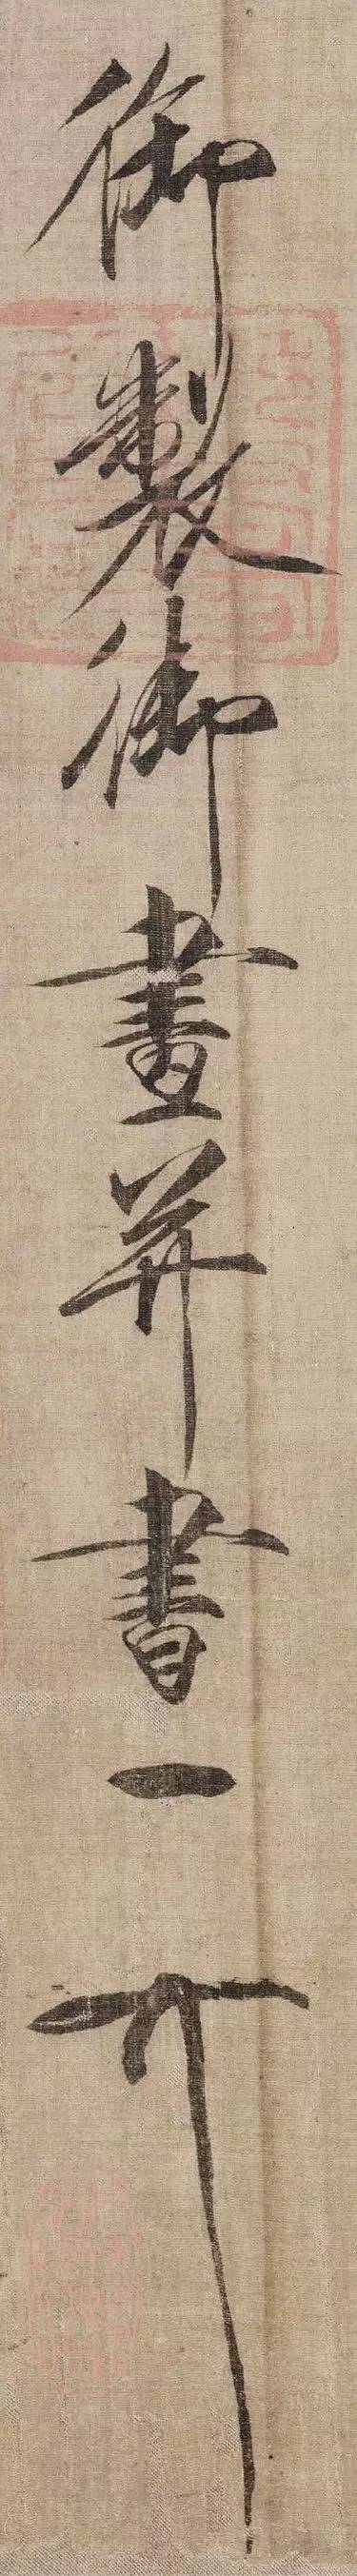 御製御畫并書一